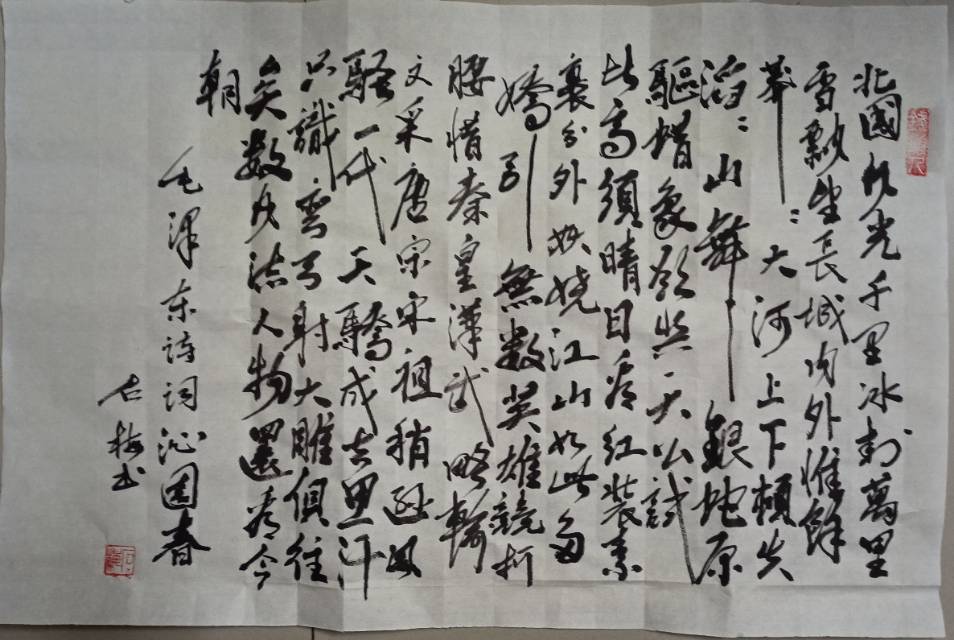 北國風光千里冰封萬里
雪飄望長城内外惟餘
莽〻大河上下頓失
滔〻山舞銀蛇原
驅蜡象欲與天公試
比高須晴日看紅裝素
裹分外妖嬈江山如此多
嬌引無數英雄競折
腰惜秦皇漢武略輸
文采唐宗宋祖稍遜風
騷一代天驕成吉思汗
只識彎弓射大雕俱往
矣数風流人物還看今
朝
毛澤东诗词沁园春
梅书